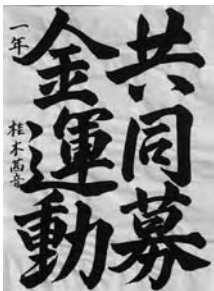 共同募
金運動
一年 桂木茜音